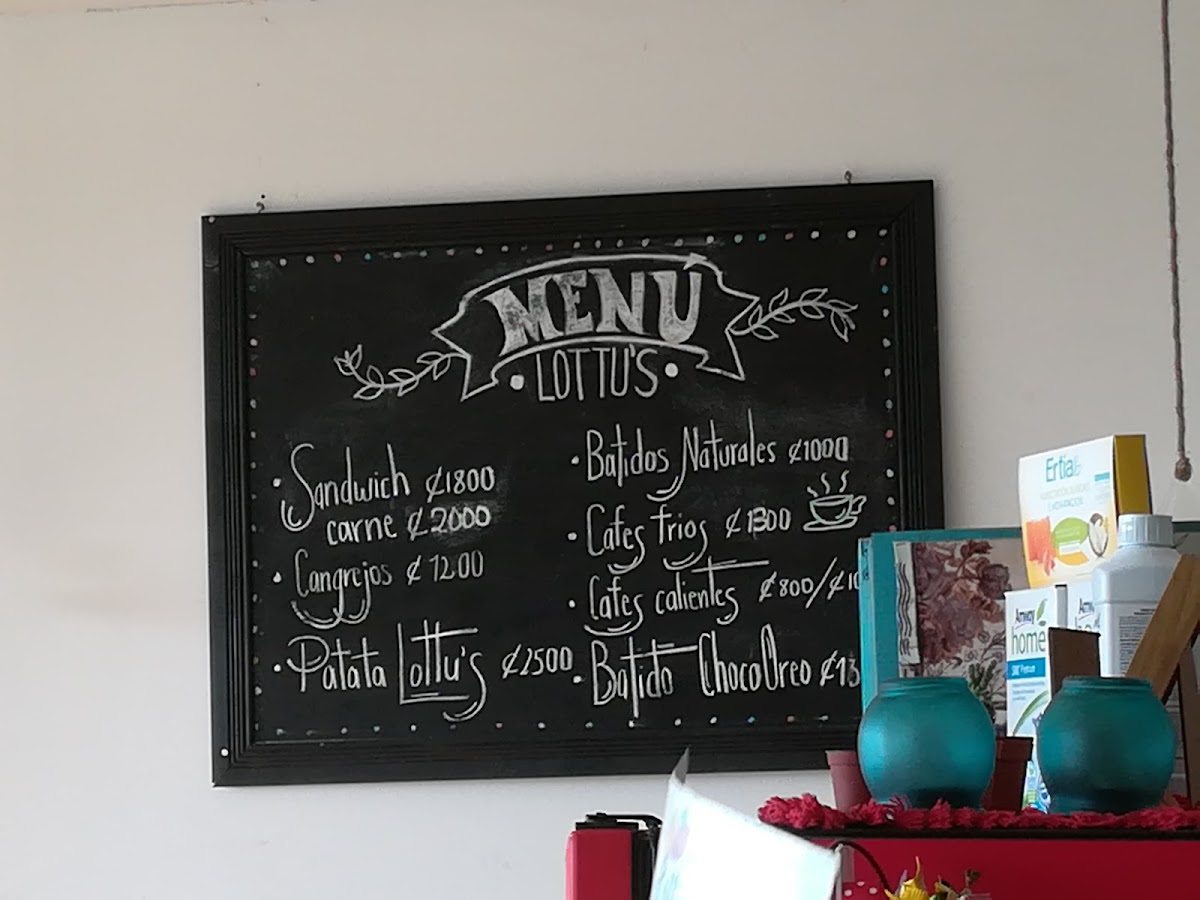 MENÚ
LOTTU'S
• Sandwich ₡1800
carne ₡2000
• Cangrejos ₡1200
• Patata Lottu's ₡2500
• Batidos Naturales ₡1000
• Cafes frios ₡1300
• Cafes calientes ₡800/₡10
• Batido ChocoOreo ₡13
Ertia
Amway
home